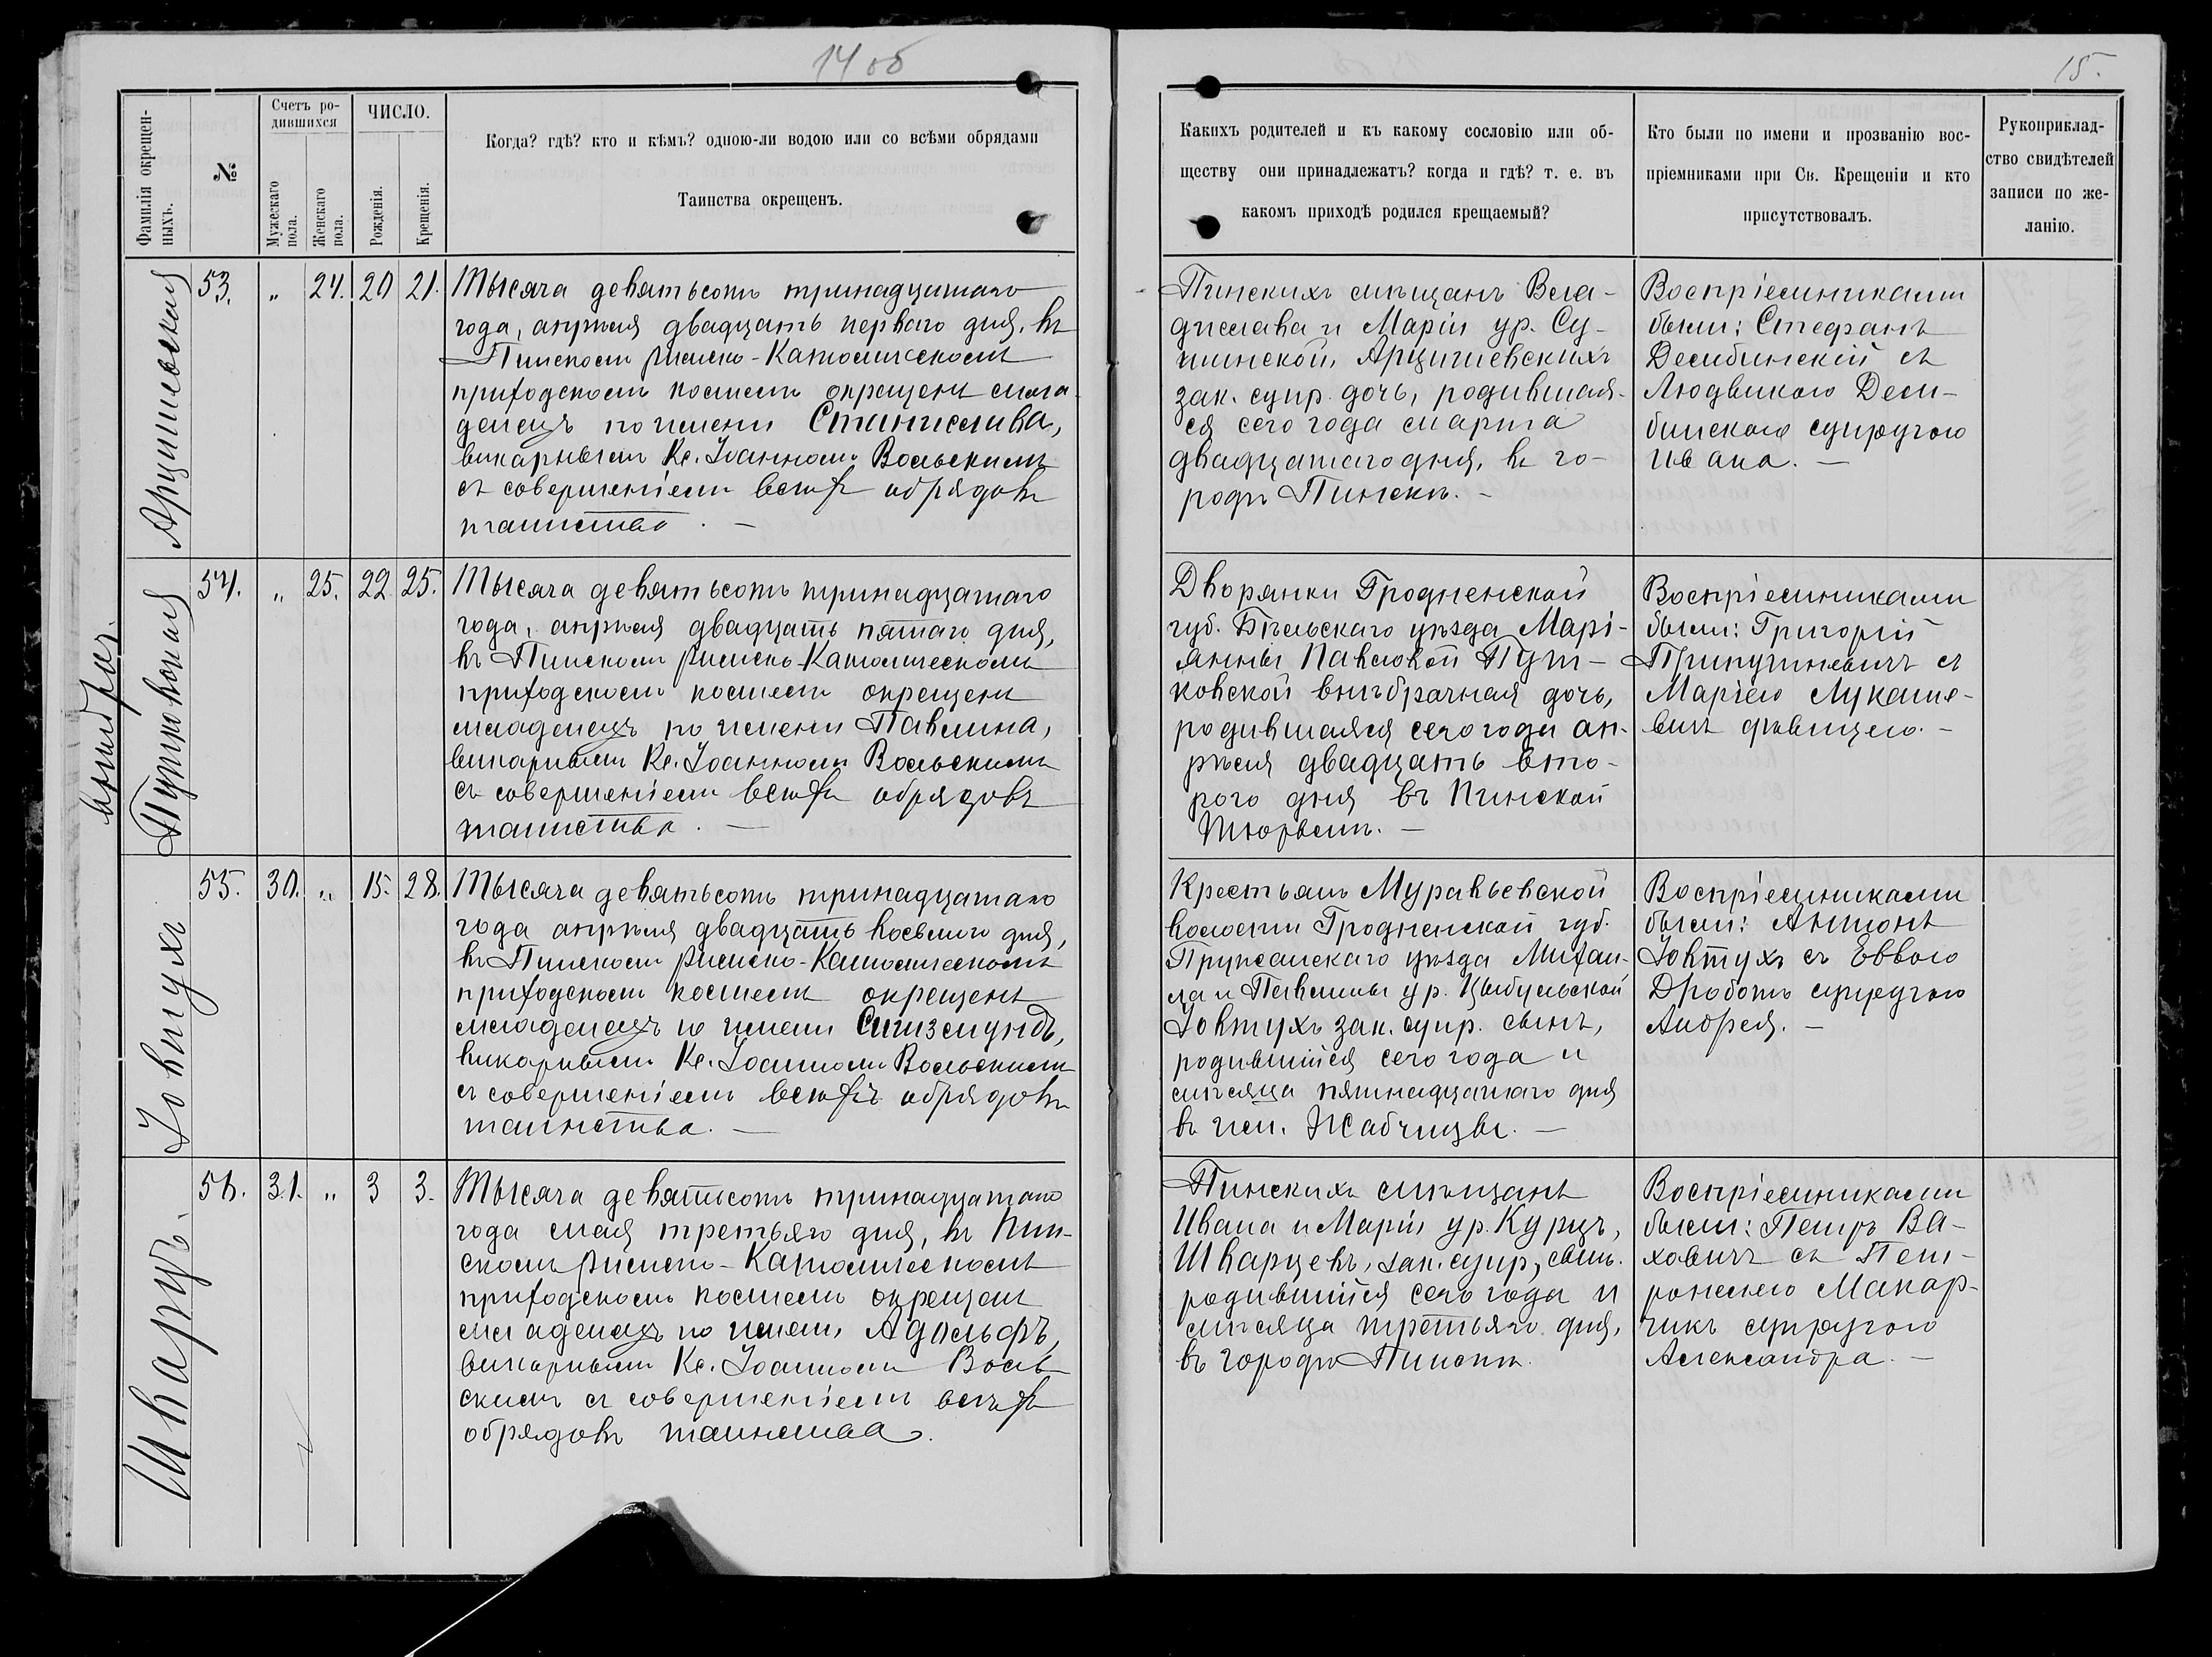 14 об
15.
Фамилія окрещен-
ныхъ.
№
Счетъ ро-
дившихся
Мужескаго
пола.
Женскаго
пола.
ЧИСЛО.
Рожденія.
Крещенія.
Когда? гдѣ? кто и кѣмъ? одною-ли водою или со всѣми обрядами
Таинства окрещенъ.
Какихъ родителей и къ какому сословію или об-
ществу они принадлежатъ? когда и гдѣ? т. е. въ
какомъ приходѣ родился крещаемый?
Кто были по имени и прозванію вос-
пріемниками при Св. Крещеніи и кто
присутствовалъ.
Рукоприклад-
ство свидѣтелей
записи по же-
ланію.
Арцишевская
53. " 24. 20 21.
Тысяча девятьсотъ тринадцатаго
года, апрѣля двадцать перваго дня, въ
Пинскомъ Римско-Католическомъ
приходскомъ костелѣ окрещенъ мла-
денецъ по имени Станислава,
викарнымъ Кс. Іоанномъ Вольскимъ
съ совершеніемъ всѣхъ обрядовъ
таинства. —
Пинскихъ мѣщанъ Вла-
дислава и Маріи ур. Су-
шинской, Арцишевскихъ
зак. супр. дочь, родившая-
ся сего года марта
двадцатаго дня, въ го-
родѣ Пинскѣ. -
Воспріемниками
были: Стефанъ
Дембинскій съ
Людвикою Дем-
бинскою супругою
Ивана. —
внѣбрач.
Путковская
54. " 25. 22. 25.
Тысяча девятьсотъ тринадцатаго
года, апрѣля двадцать пятаго дня,
въ Пинскомъ Римско-Католическомъ
приходскомъ костелѣ окрещенъ
младенецъ по имени Павлина,
викарнымъ Кс. Іоанномъ Вольскимъ
съ совершеніемъ всѣхъ обрядовъ
таинства. —
Дворянки Гродненской
губ. Бѣльскаго уѣзда Марі-
анны Павловой Пут-
ковской внѣбрачная дочь,
родившаяся сего года ап-
рѣля двадцать вто-
рого дня въ Пинской
тюрьмѣ. —
Воспріемниками
были: Григорій
Припутневичъ съ
Маріею Лукаше-
вичъ дѣвицею. -
Іовтухъ
55. 30. " 15. 28.
Тысяча девятьсотъ тринадцатаго
года апрѣля двадцать восьмого дня,
въ Пинскомъ Римско-Католическомъ
приходскомъ костелѣ окрещенъ
младенецъ по имени Сигизмундъ,
викарнымъ Кс. Іоанномъ Вольскимъ
съ совершеніемъ всѣхъ обрядовъ
таинства. —
Крестьянъ Муравьевской
волости Гродненской губ.
Пружанскаго уѣзда Михаи-
ла и Павлины ур. Цыбульской
Іовтухъ зак. супр. сынъ,
родившійся сего года и
мѣсяца пятнадцатаго дня
въ им. Жабчицы. —
Воспріемниками
были: Антонъ
Іовтухъ съ Еввою
Дроботъ супругою
Андрея. —
Шварцъ.
56. 31. " 3 3.
Тысяча девятьсотъ тринадцатаго
года мая третьяго дня, въ Пин-
скомъ Римско-Католическомъ
приходскомъ костелѣ окрещенъ
младенецъ по имени Адольфъ,
викарнымъ Кс. Іоанномъ Воль-
скимъ съ совершеніемъ всѣхъ
обрядовъ таинства.
Пинскихъ мѣщанъ
Ивана и Маріи ур. Курцъ,
Шварцевъ, зак. супр, сынъ.
родившійся сего года и
мѣсяца третьяго дня,
въ городѣ Пинскѣ.
Воспріемниками
были: Петръ Ва-
ховичъ съ Пет-
ронелею Макар-
чикъ супругою
Александра. —